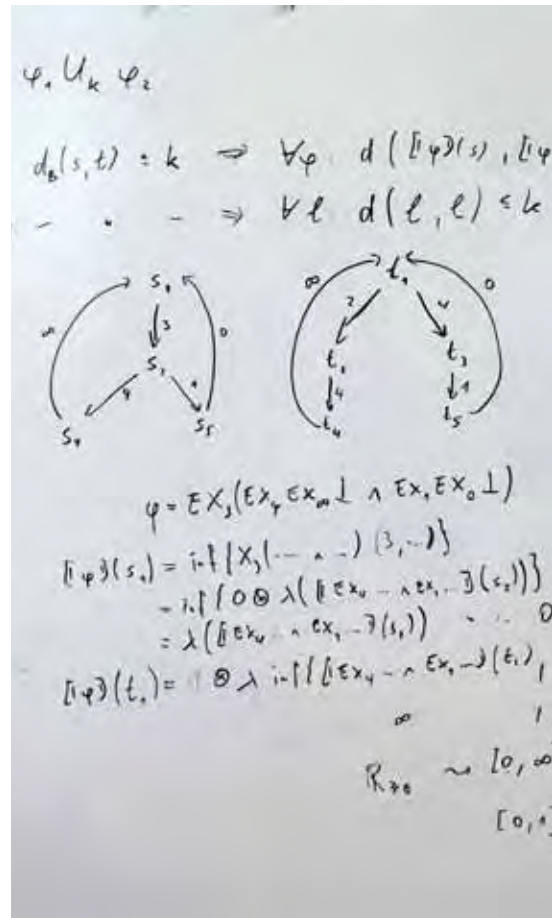 φ₁ U_k φ₂
d_B(s,t) = k ⇒ ∀φ d(⟦φ⟧(s), ⟦φ
– " – ⇒ ∀ℓ d(ℓ, ℓ) ≤ k
s₁ t₁
∞ 3 0 ∞ 2 4 0
s₂ t₂ t₃
4 1 4 1
s₄ s₅ t₄ t₅
φ = EX₃(EX₄ EX_∞ ⊥ ∧ EX₁ EX₀ ⊥)
⟦φ⟧(s₁) = inf{X₃(... ∧ ...)(3, ...)}
= inf{0 ⊗ λ(⟦EX₄ ... ∧ EX₁ ...⟧(s₂))}
= λ(⟦EX₄ ... ∧ EX₁ ...⟧(s₂)) ... 0
⟦φ⟧(t₁) = 1 ⊗ λ inf{⟦EX₄ ... ∧ EX₁ ...⟧(t₂),
∞ 1
ℝ≥0 ~ [0, ∞
[0, 1]